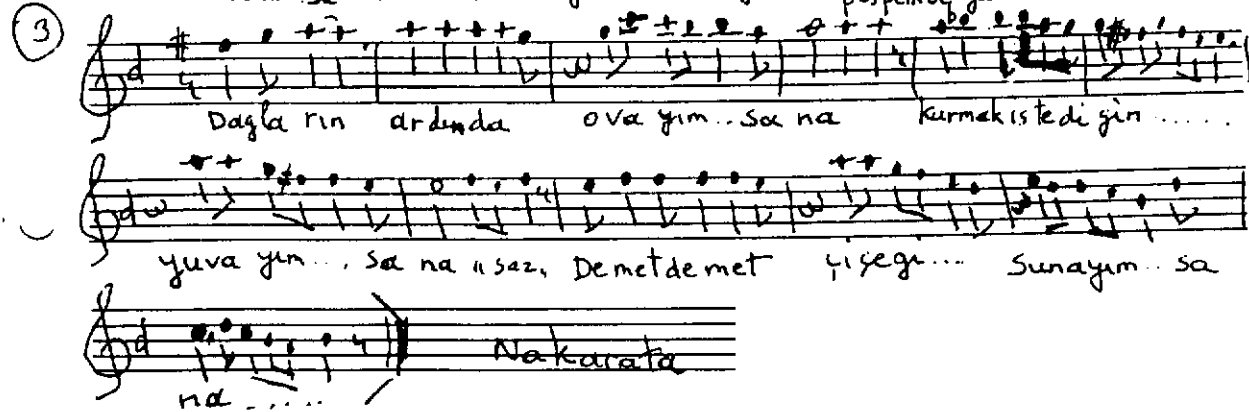 3
Dagla rın ardında ova yım.. sa na kurmak is te di gin .....
yuva yım ... sa na "saz" Demet de met çiçegi... Sunayım.. sa
na ..... Nakarata